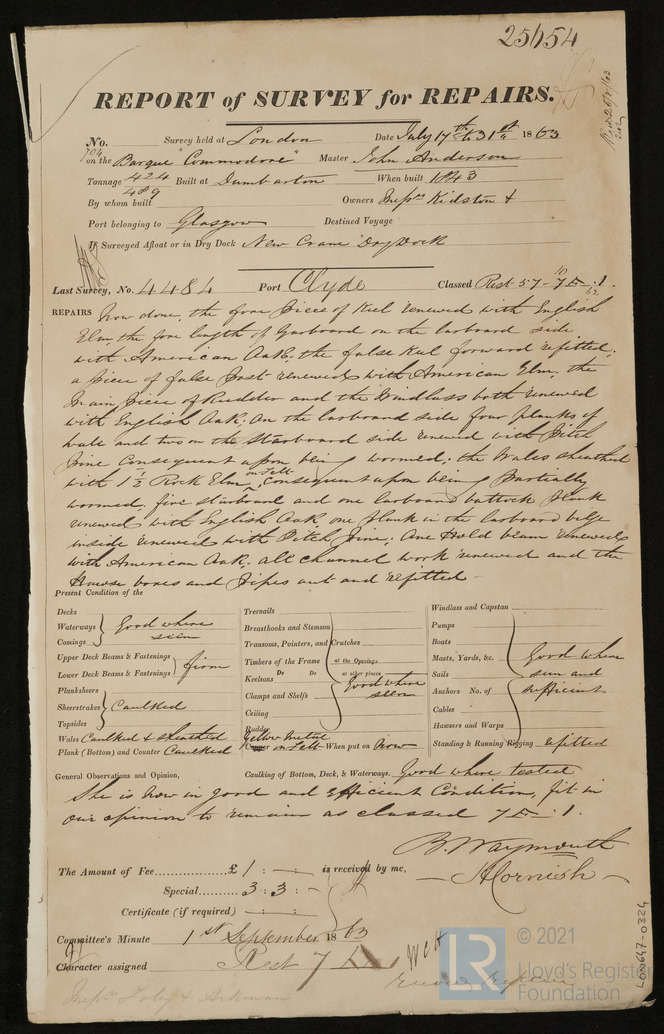 25654
REPORT of SURVEY for REPAIRS.
No. 704 Survey held at London Date July 17th & 31st 1863
on the Barque "Commodore" Master John Anderson
Tonnage 424 489 Built at Dumbarton When built 1843
By whom built Owners Messrs Kidston &
Port belonging to Glasgow Destined Voyage
If Surveyed Afloat or in Dry Dock New Crane Dry Dock
Last Survey, No. 4484 Port Clyde Classed Rest 57-
REPAIRS Now done, the fore piece of Keel renewed with English
Elm, the fore length of Garboard on the larboard side
with American Oak; the false Keel forward refitted;
a piece of false Post renewed with American Elm, the
Main piece of Rudder and the Windlass both renewed
with English Oak; on the larboard side four planks of
Wale and two on the Starboard side renewed with Pitch
Pine consequent upon being wormed; the Wales sheathed
with 1 1/2 Rock Elm on Felt, consequent upon being partially
wormed, five starboard and one larboard buttock plank
renewed with English Oak, one plank in the larboard bilge
inside renewed with Pitch Pine; One Hold beam renewed
with American Oak, all channel work renewed and the
Hawse bores and pipes out and refitted
Present Condition of the
Decks
Waterways } Good where seen
Comings
Upper Deck Beams & Fastenings } firm
Lower Deck Beams & Fastenings
Planksheers
Sheerstrakes } Caulked
Topsides
Wales Caulked & sheathed
Plank (Bottom) and Counter Caulked
Treenails
Breasthooks and Stemson
Transoms, Pointers, and Crutches
Timbers of the Frame at the Openings
Do Do at other places
Keelsons
Clamps and Shelfs } Good where seen
Ceiling
Rudder
Yellow Metal
Copper on Felt When put on Now
Windlass and Capstan
Pumps
Boats
Masts, Yards, &c. } Good where
Sails seen and
Anchors No. of sufficient
Cables
Hawsers and Warps
Standing & Running Rigging refitted
General Observations and Opinion, Caulking of Bottom, Deck, & Waterways. Good where tested
She is now in good and efficient Condition, fit in
our opinion to remain as classed 7 Æ. 1.
B. Waymouth
The Amount of Fee £ 1 : - : - is received by me,
J Cornish
Special 3 : 3 : -
Certificate (if required) - : - : -
Committee's Minute 1st September 1863
Character assigned Rest 7 Æ 1
© 2021
LR Lloyd's Register
Foundation
LON647-0324